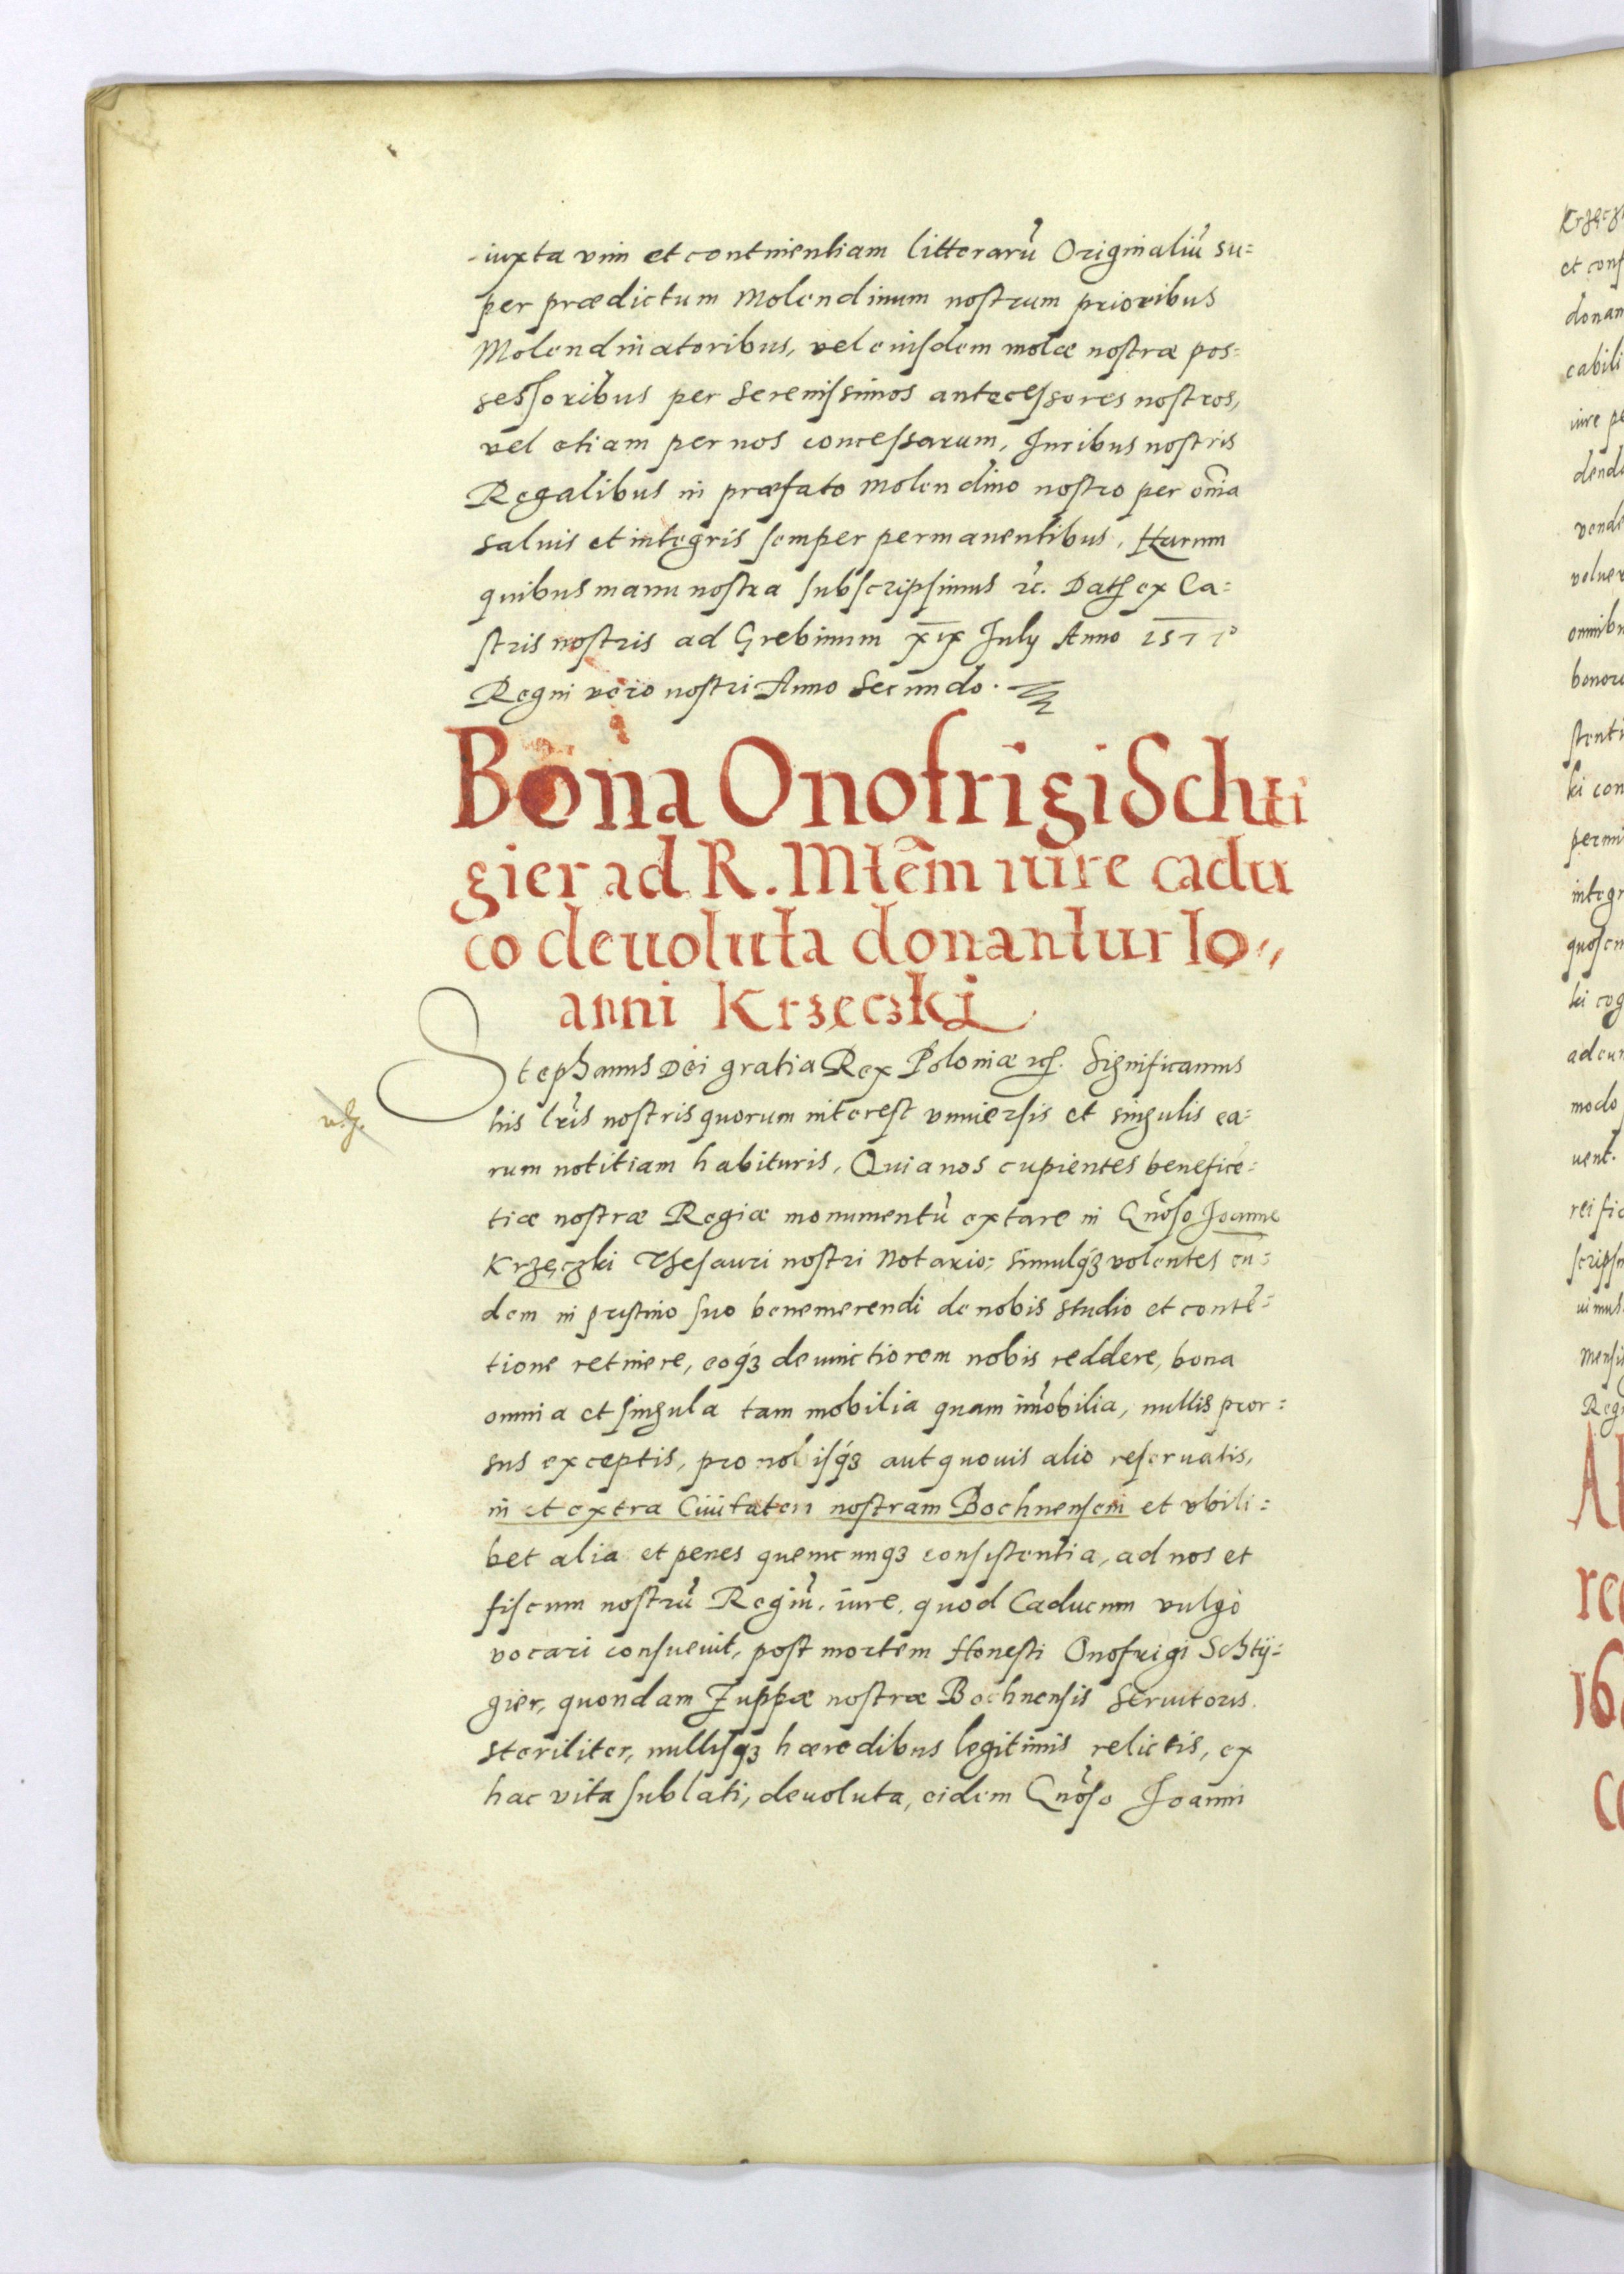 iuxta vim et continentiam litterarũ Originaliũ su=
per prædictum Molendinum nostrum prioribus
Molendinatoribus, vel eiusdem molæ nostræ pos=
sessoribus per Serenissimos antecessores nostros,
vel etiam per nos concessarum, Iuribus nostris
Regalibus in præfato Molendino nostro per om̃ia
saluis et integris semper permanentibus. Harum
quibus manu nostra subscripsimus etc. Dat ex Ca=
stris nostris ad Grebinum xix July Anno 1577º
Regni vero nostri Anno Secundo.
Bona Onofrigi Schti
gier ad R. Mtẽm iure cadu
co deuoluta donantur Io,,
anni Krzeczki
Stephanus Dei gratia Rex Poloniæ etc. Significamus
his lr̃is nostris quorum interest vniuersis et singulis ea=
rum notitiam habituris, Quia nos cupientes beneficẽ=
tiæ nostræ Regiæ monumentũ extare in Gnõso Joanne
Krzęczki Thesauri nostri Notario; simulq́ꝫ volentes eũ=
dem in pristino suo benemerendi de nobis studio et contẽ=
tione retinere, eoq́ꝫ deuinctiorem nobis reddere, bona
omnia et singula tam mobilia quam im̃obilia, nullis pror=
sus exceptis, pro nobisq́ꝫ aut quouis alio reseruatis,
in et extra Ciuitatem nostram Bochnensem et vbili=
bet alia et penes quemcunqꝫ consistentia, ad nos et
fiscum nostrũ Regiũ, iure, quod Caducum vulgò
vocari consueuit, post mortem Honesti Onofrigi Schtÿ=
gier, quondam Zuppæ nostræ Bochnensis Seruitoris
steriliter, nullisqꝫ hæredibus legitimis relictis, ex
hac vita sublati, deuoluta, eidem Gnõso Joanni